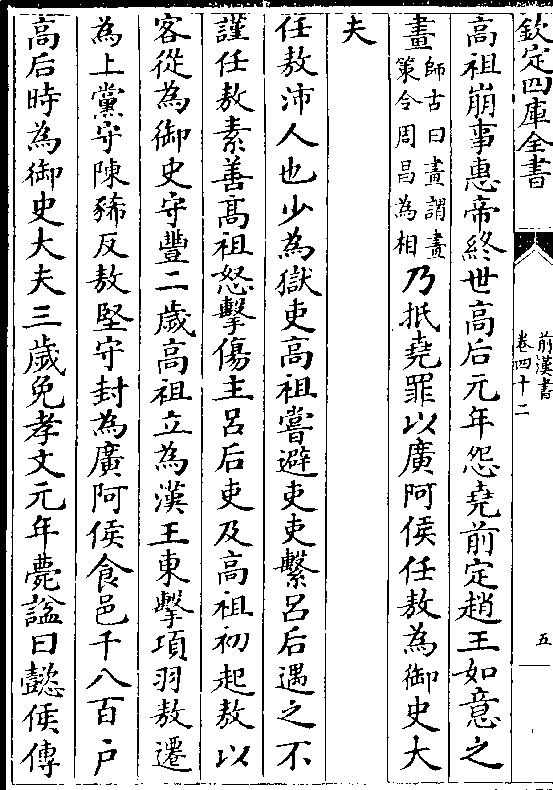 欽定四庫全書
前漢書
卷四十二
五
高祖崩事惠帝終世高后元年怨堯前定趙王如意之
畫師古曰畫謂畫策令周昌為相乃抵堯罪以廣阿侯任敖為御史大
夫
任敖沛人也少為獄吏高祖嘗避吏吏繫呂后遇之不
謹任敖素善高祖怒擊傷主呂后吏及高祖初起敖以
客從為御史守豐二歲高祖立為漢王東擊項羽敖遷
為上黨守陳豨反敖堅守封為廣阿侯食邑千八百户
高后時為御史大夫三歲免孝文元年薨諡曰懿侯傳